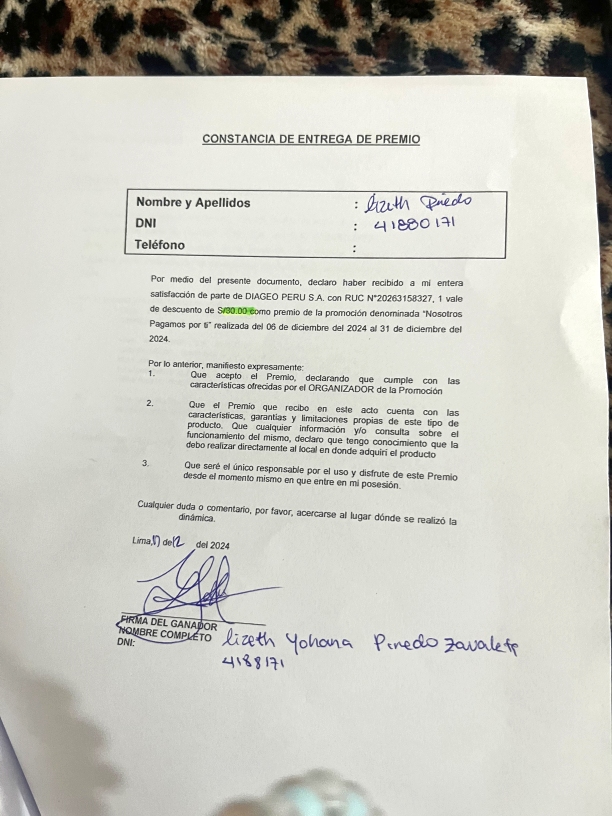 CONSTANCIA DE ENTREGA DE PREMIO
Nombre y Apellidos : lizeth Pinedo
DNI : 41880171
Teléfono :
Por medio del presente documento, declaro haber recibido a mi entera
satisfacción de parte de DIAGEO PERU S.A. con RUC N°20263158327, 1 vale
de descuento de S/30.00 como premio de la promoción denominada "Nosotros
Pagamos por ti" realizada del 06 de diciembre del 2024 al 31 de diciembre del
2024.
Por lo anterior, manifiesto expresamente:
1. Que acepto el Premio, declarando que cumple con las
características ofrecidas por el ORGANIZADOR de la Promoción
2. Que el Premio que recibo en este acto cuenta con las
características, garantías y limitaciones propias de este tipo de
producto. Que cualquier información y/o consulta sobre el
funcionamiento del mismo, declaro que tengo conocimiento que la
debo realizar directamente al local en donde adquirí el producto
3. Que seré el único responsable por el uso y disfrute de este Premio
desde el momento mismo en que entre en mi posesión.
Cualquier duda o comentario, por favor, acercarse al lugar dónde se realizó la
dinámica.
Lima, de 12 del 2024
FIRMA DEL GANADOR
NOMBRE COMPLETO lizeth Yohana Pinedo Zavaleta
DNI: 4188171